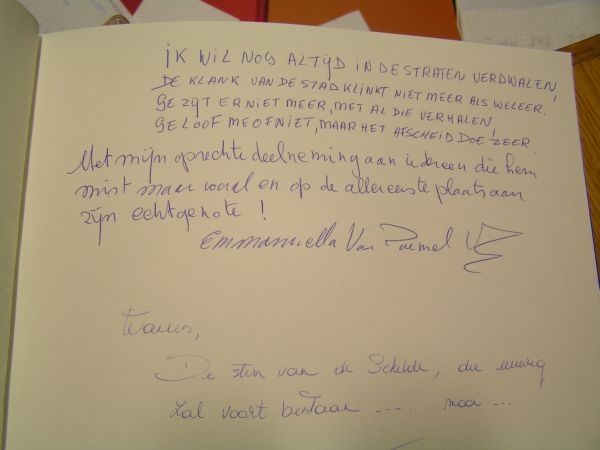 iK WIL NOG ALTIJD IN DE STRATEN VERDWALEN!
DE KLANK VAN DE STAD KLINKT NIET MEER ALS WELEER.
GE ZIJT ER NIET MEER, MET AL DIE VERHALEN!
GELOOF ME OF NIET, MAAR HET AFSCHEID DOE'ZEER.
Met mijn oprechte deelneming aan iedereen die hem
mist maar vooral en op de allereerste plaats aan
zijn echtgenote !
Emmanuella Van
De stem van de Schelde, die eeuwig
zal voort bestaan .... mooi ...